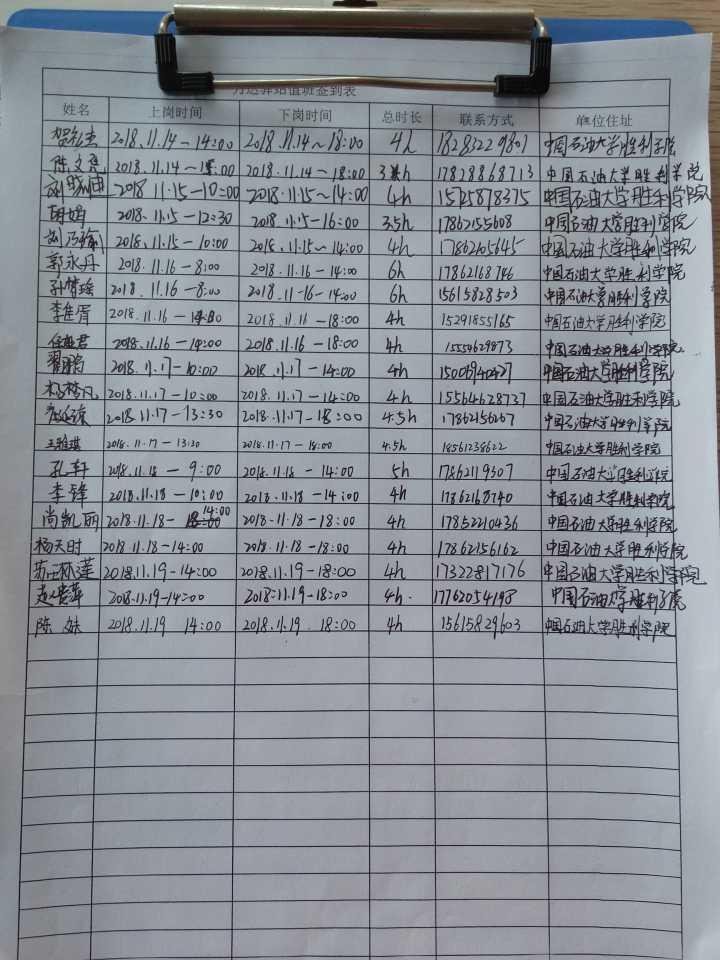 驿站值班签到表
姓名 上岗时间 下岗时间 总时长 联系方式 单位住址
2018.11.14-14:00 2018.11.14~18:00 4h 18283229801 中国石油大学胜利学院
陈文亮 2018.11.14~15:00 2018.11.14~18:00 3h 17828868713 中国石油大学胜利学院
2018.11.15-10:00 2018.11.15~14:00 4h 15725878375 中国石油大学胜利学院
胡娟 2018.11.15-12:30 2018.11.15-16:00 3.5h 17862155608 中国石油大学胜利学院
2018.11.15-10:00 2018.11.15-14:00 4h 17862165645 中国石油大学胜利学院
郭永丹 2018.11.16-8:00 2018.11.16-14:00 6h 17862168746 中国石油大学胜利学院
孙梦瑶 2018.11.16-8:00 2018.11-16-14:00 6h 15615828503 中国石油大学胜利学院
李佳霄 2018.11.16- 2018.11.16-18:00 4h 15291855165 中国石油大学胜利学院
2018.11.16-14:00 2018.11.16-18:00 4h 15554629873 中国石油大学胜利学院
翟鹏 2018.11.17-10:00 2018.11.17-14:00 4h 中国石油大学胜利学院
杨梦凡 2018.11.17-10:00 2018.11.17-14:00 4h 15564628737 中国石油大学胜利学院
2018.11.17-13:30 2018.11.17-18:00 4.5h 17862156267 中国石油大学胜利学院
王雅琪 2018.11.17-13:30 2018.11.17-18:00 4.5h 18561238622 中国石油大学胜利学院
孔轩 2018.11.18-9:00 2018.11.18-14:00 5h 17862119307 中国石油大学胜利学院
李锋 2018.11.18-10:00 2018.11.18-14:00 4h 17862168740 中国石油大学胜利学院
尚凯丽 2018.11.18-14:00 2018.11.18-18:00 4h 17852210436 中国石油大学胜利学院
杨天时 2018.11.18-14:00 2018.11.18-18:00 4h 17862156162 中国石油大学胜利学院
2018.11.19-14:00 2018.11.19-18:00 4h 17322817176 中国石油大学胜利学院
2018.11.19-14:00 2018.11.19-18:00 4h. 17762054198 中国石油大学胜利学院
陈妹 2018.11.19 14:00 2018.11.19 18:00 4h 15615829603 中国石油大学胜利学院